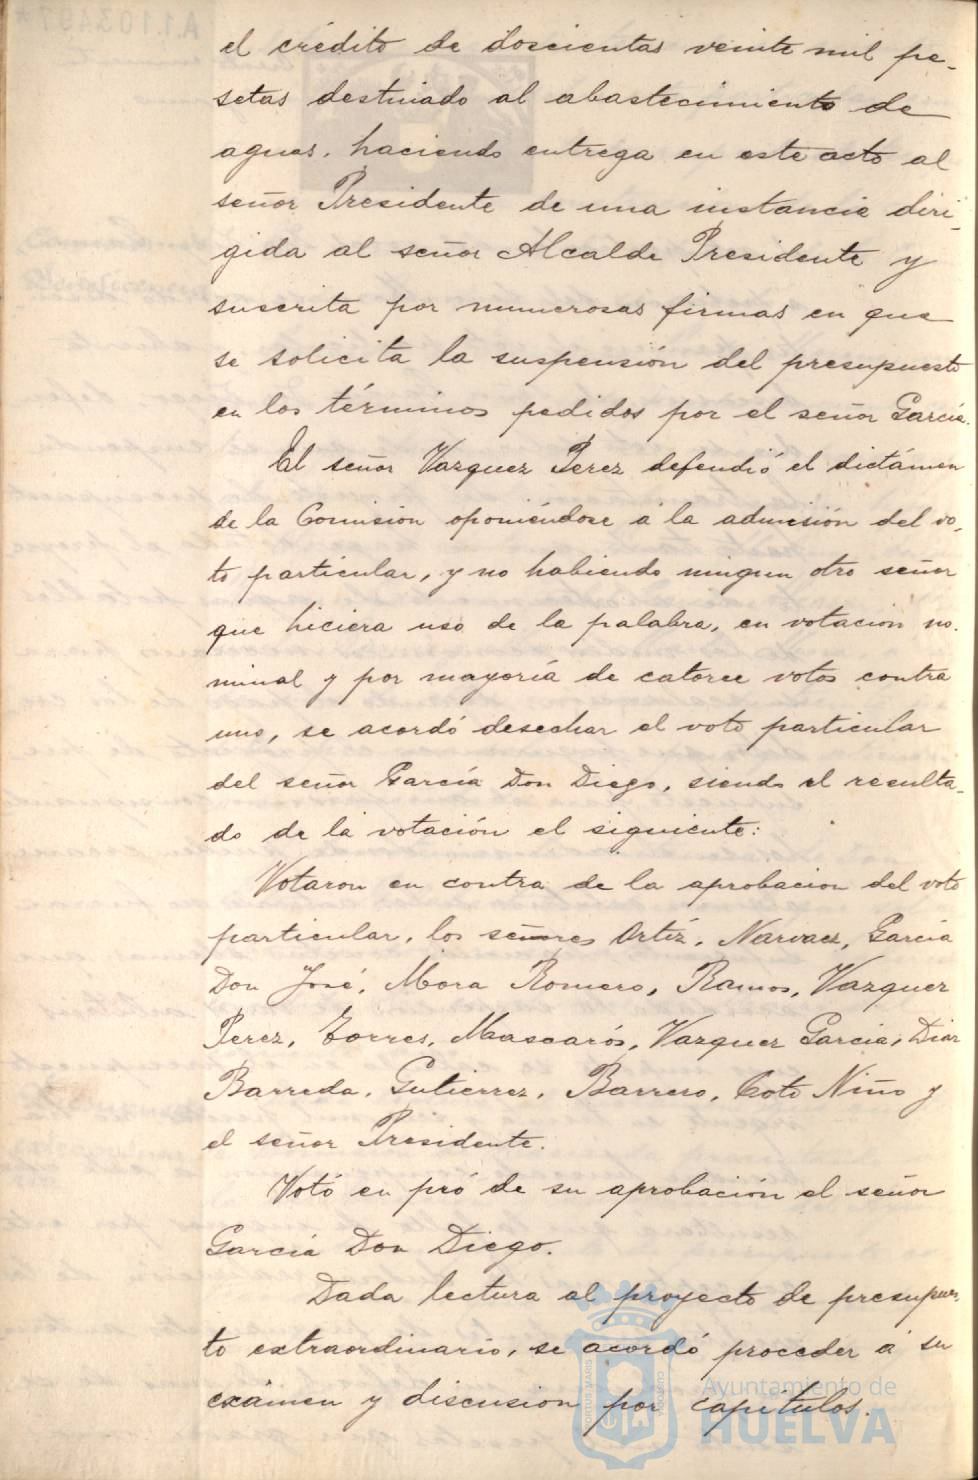 el crédito de doscientas veinte mil pe-
setas destinado al abastecimiento de
aguas, haciendo entrega en este acto al
señor Presidente de una instancia diri-
gida al señor Alcalde Presidente y
suscrita por numerosas firmas en que
se solicita la suspensión del presupuesto
en los términos pedidos por el señor García.
El señor Vazquez Perez defendió el dictámen
de la Comision oponiéndose á la admisión del vo-
to particular, y no habiendo ningun otro señor
que hiciera uso de la palabra, en votacion no-
minal y por mayoría de catorce votos contra
uno, se acordó desechar el voto particular
del señor García Don Diego, siendo el resulta-
do de la votación el siguiente:
Votaron en contra de la aprobacion del voto
particular, los señores Ortíz, Narvaez, García
Don José, Mora Romero, Ramos, Vazquez
Perez, Torres, Mascarós, Vazquez García, Diaz
Barreda, Gutierrez, Barrero, Coto Niño y
el señor Presidente.
Votó en pró de su aprobación el señor
García Don Diego.
Dada lectura al proyecto de presupues-
to extraordinario, se acordó proceder á su
exámen y discusion por capítulos.
Ayuntamiento de
HUELVA